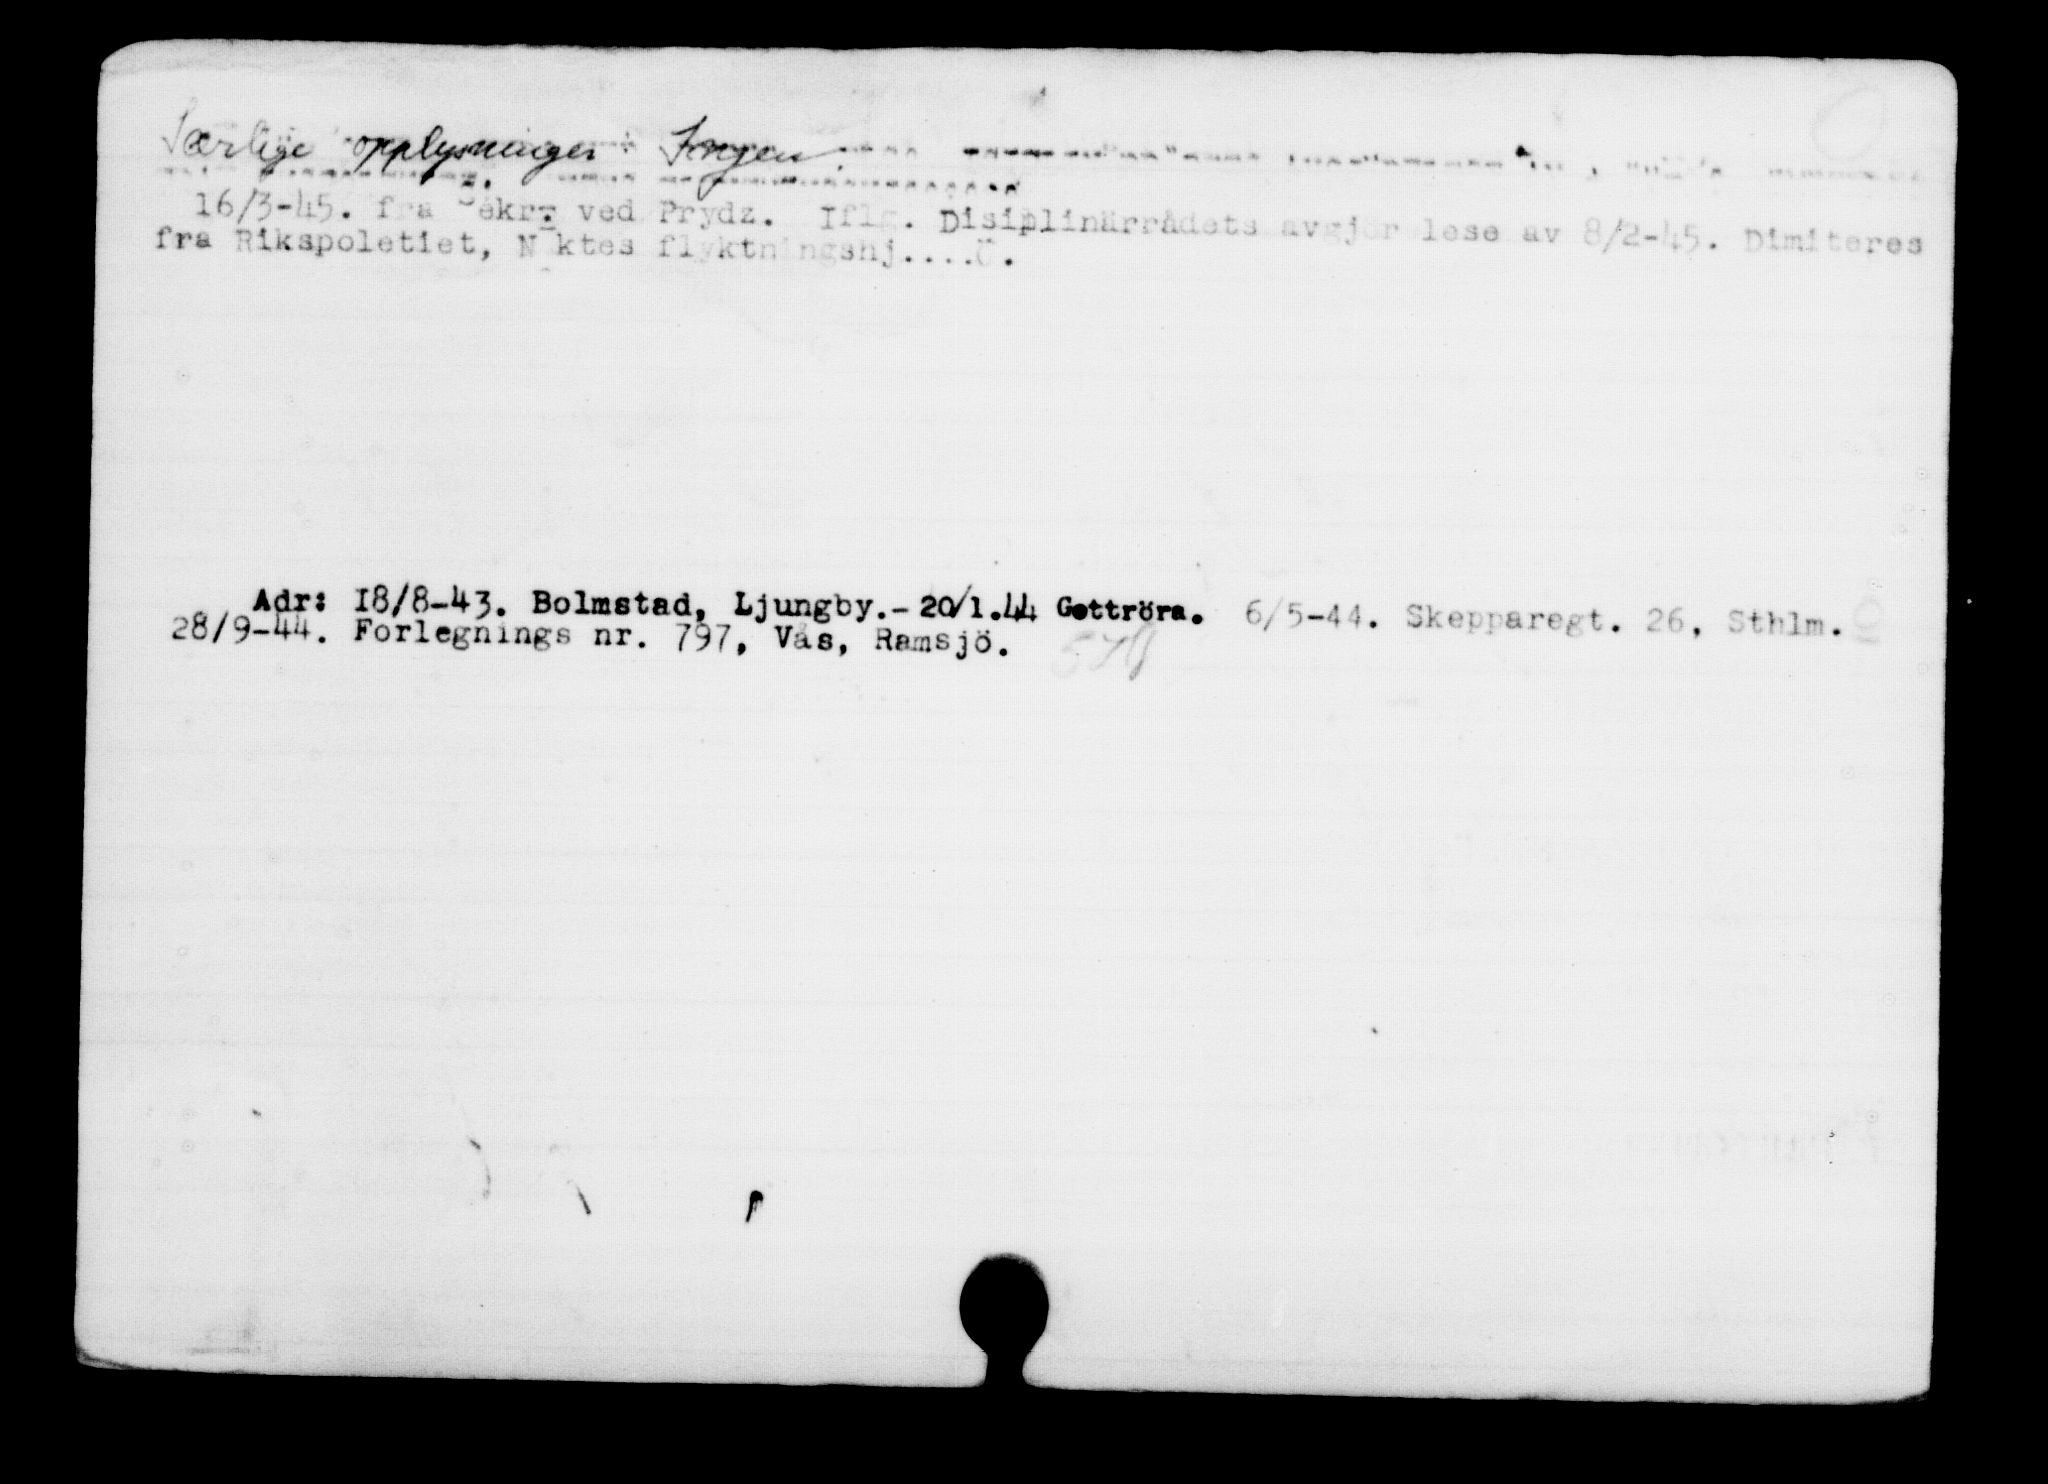 Særlige opplysninger: Ingen.
16/3-45. fra Sekr. ved Prydz. Iflg. Disiplinärrådets avgjörlese av 8/2-45. Dimiteres
fra Rikspoletiet, N ktes flyktningshj....Ö.
Adr: I8/8-43. Bolmstad, Ljungby.- 20/1.44 Gottröra. 6/5-44. Skepparegt. 26, Sthlm.
28/9-44. Forlegnings nr. 797, Vås, Ramsjö.